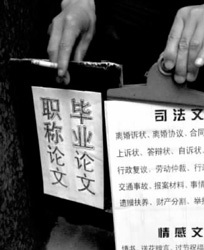 毕业论文
职称论文
司法文
离婚诉状、离婚协议、合同
上诉状、答辩状、自诉状、
行政复议、劳动仲裁、行
交通事故、报案材料、事情
遗嘱扶养、财产分割、举
情感文
情书